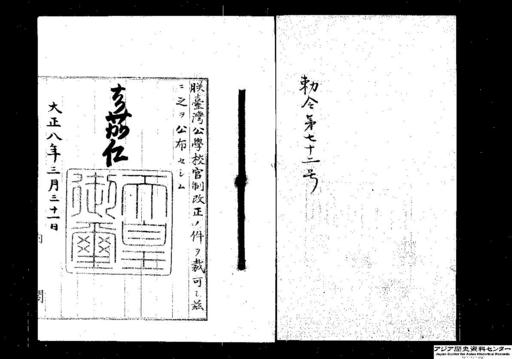 勅令第七十二号
朕臺灣公學校官制改正ノ件ヲ裁可シ茲
ニ之ヲ公布セシム
嘉仁
天皇
御璽
大正八年三月三十一日
アジア歴史資料センター
Japan Center for Asian Historical Records